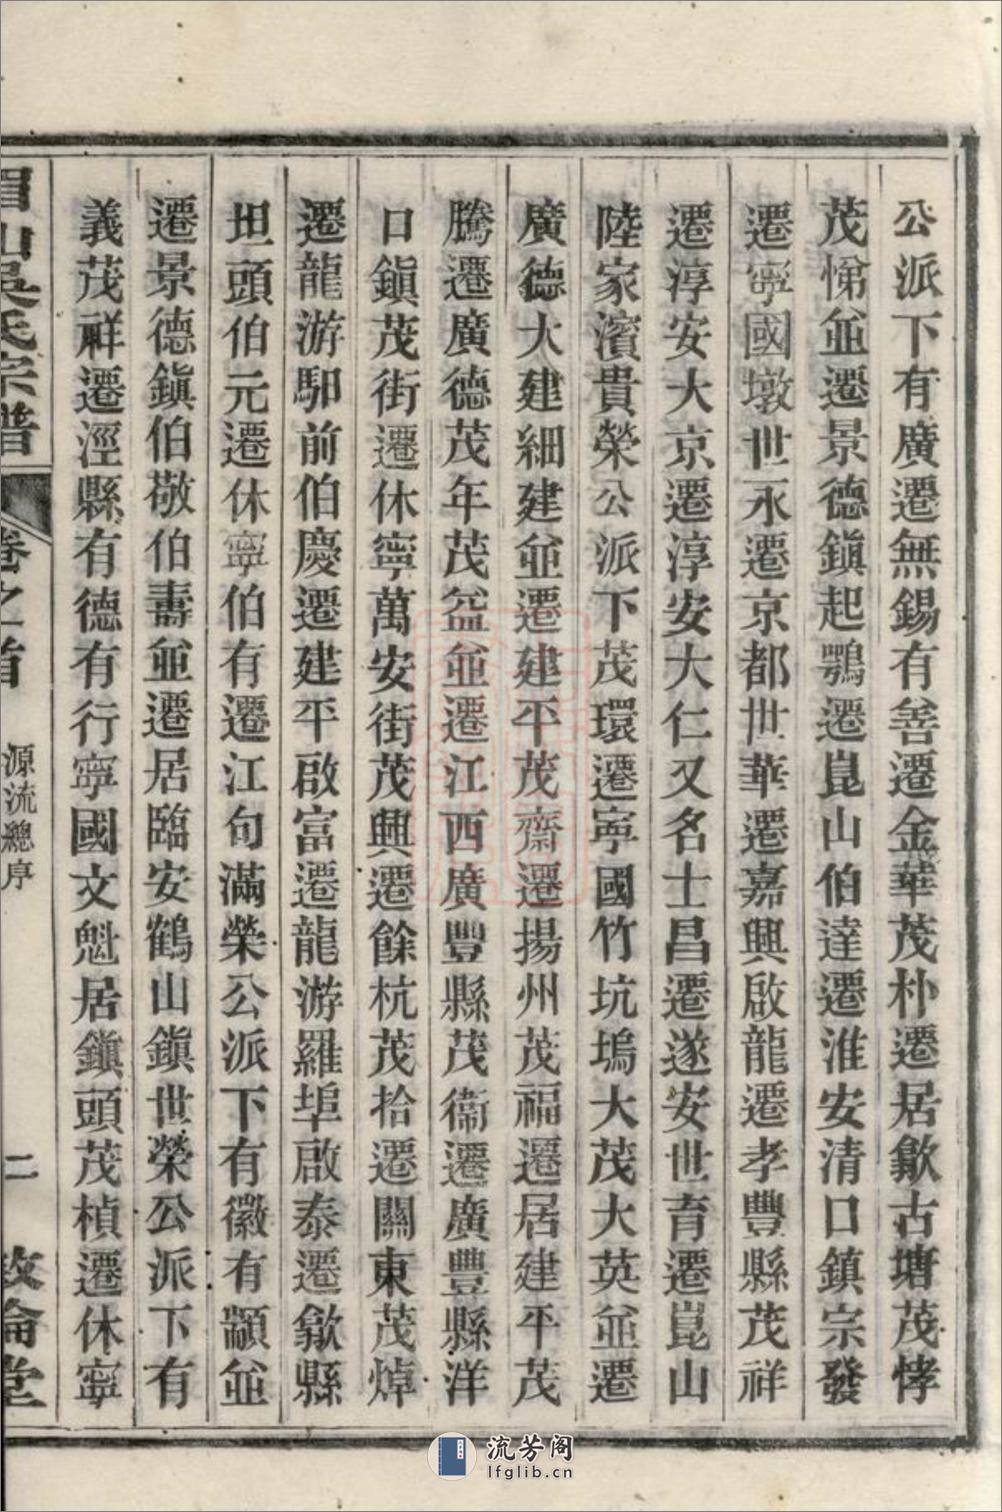 公派下有廣遷無錫有善遷金華茂朴遷居歙古塘茂㤓
茂悌並遷景德鎮起鶚遷崑山伯達遷淮安清口鎮宗發
遷寧國墩世永遷京都世華遷嘉興啟龍遷孝豐縣茂祥
遷淳安大京遷淳安大仁又名士昌遷遂安世育遷崑山
陸家濱貴榮公派下茂環遷寧國竹坑塢大茂大英並遷
廣德大建細建並遷建平茂齋遷揚州茂福遷居建平茂
騰遷廣德茂年茂益並遷江西廣豐縣茂衞遷廣豐縣洋
口鎮茂街遷休寧萬安街茂興遷餘杭茂拾遷關東茂焯
遷龍游馹前伯慶遷建平啟富遷龍游羅埠啟泰遷歙縣
坦頭伯元遷休寧伯有遷江旬滿榮公派下有徽有顓並
遷景德鎮伯敬伯壽並遷居臨安鶴山鎮世榮公派下有
義茂祥遷涇縣有德有行寧國文魁居鎮頭茂楨遷休寧
眉山吳氏宗譜
卷之首
源流總序
二
敦倫堂
流芳阁
lfglib.cn